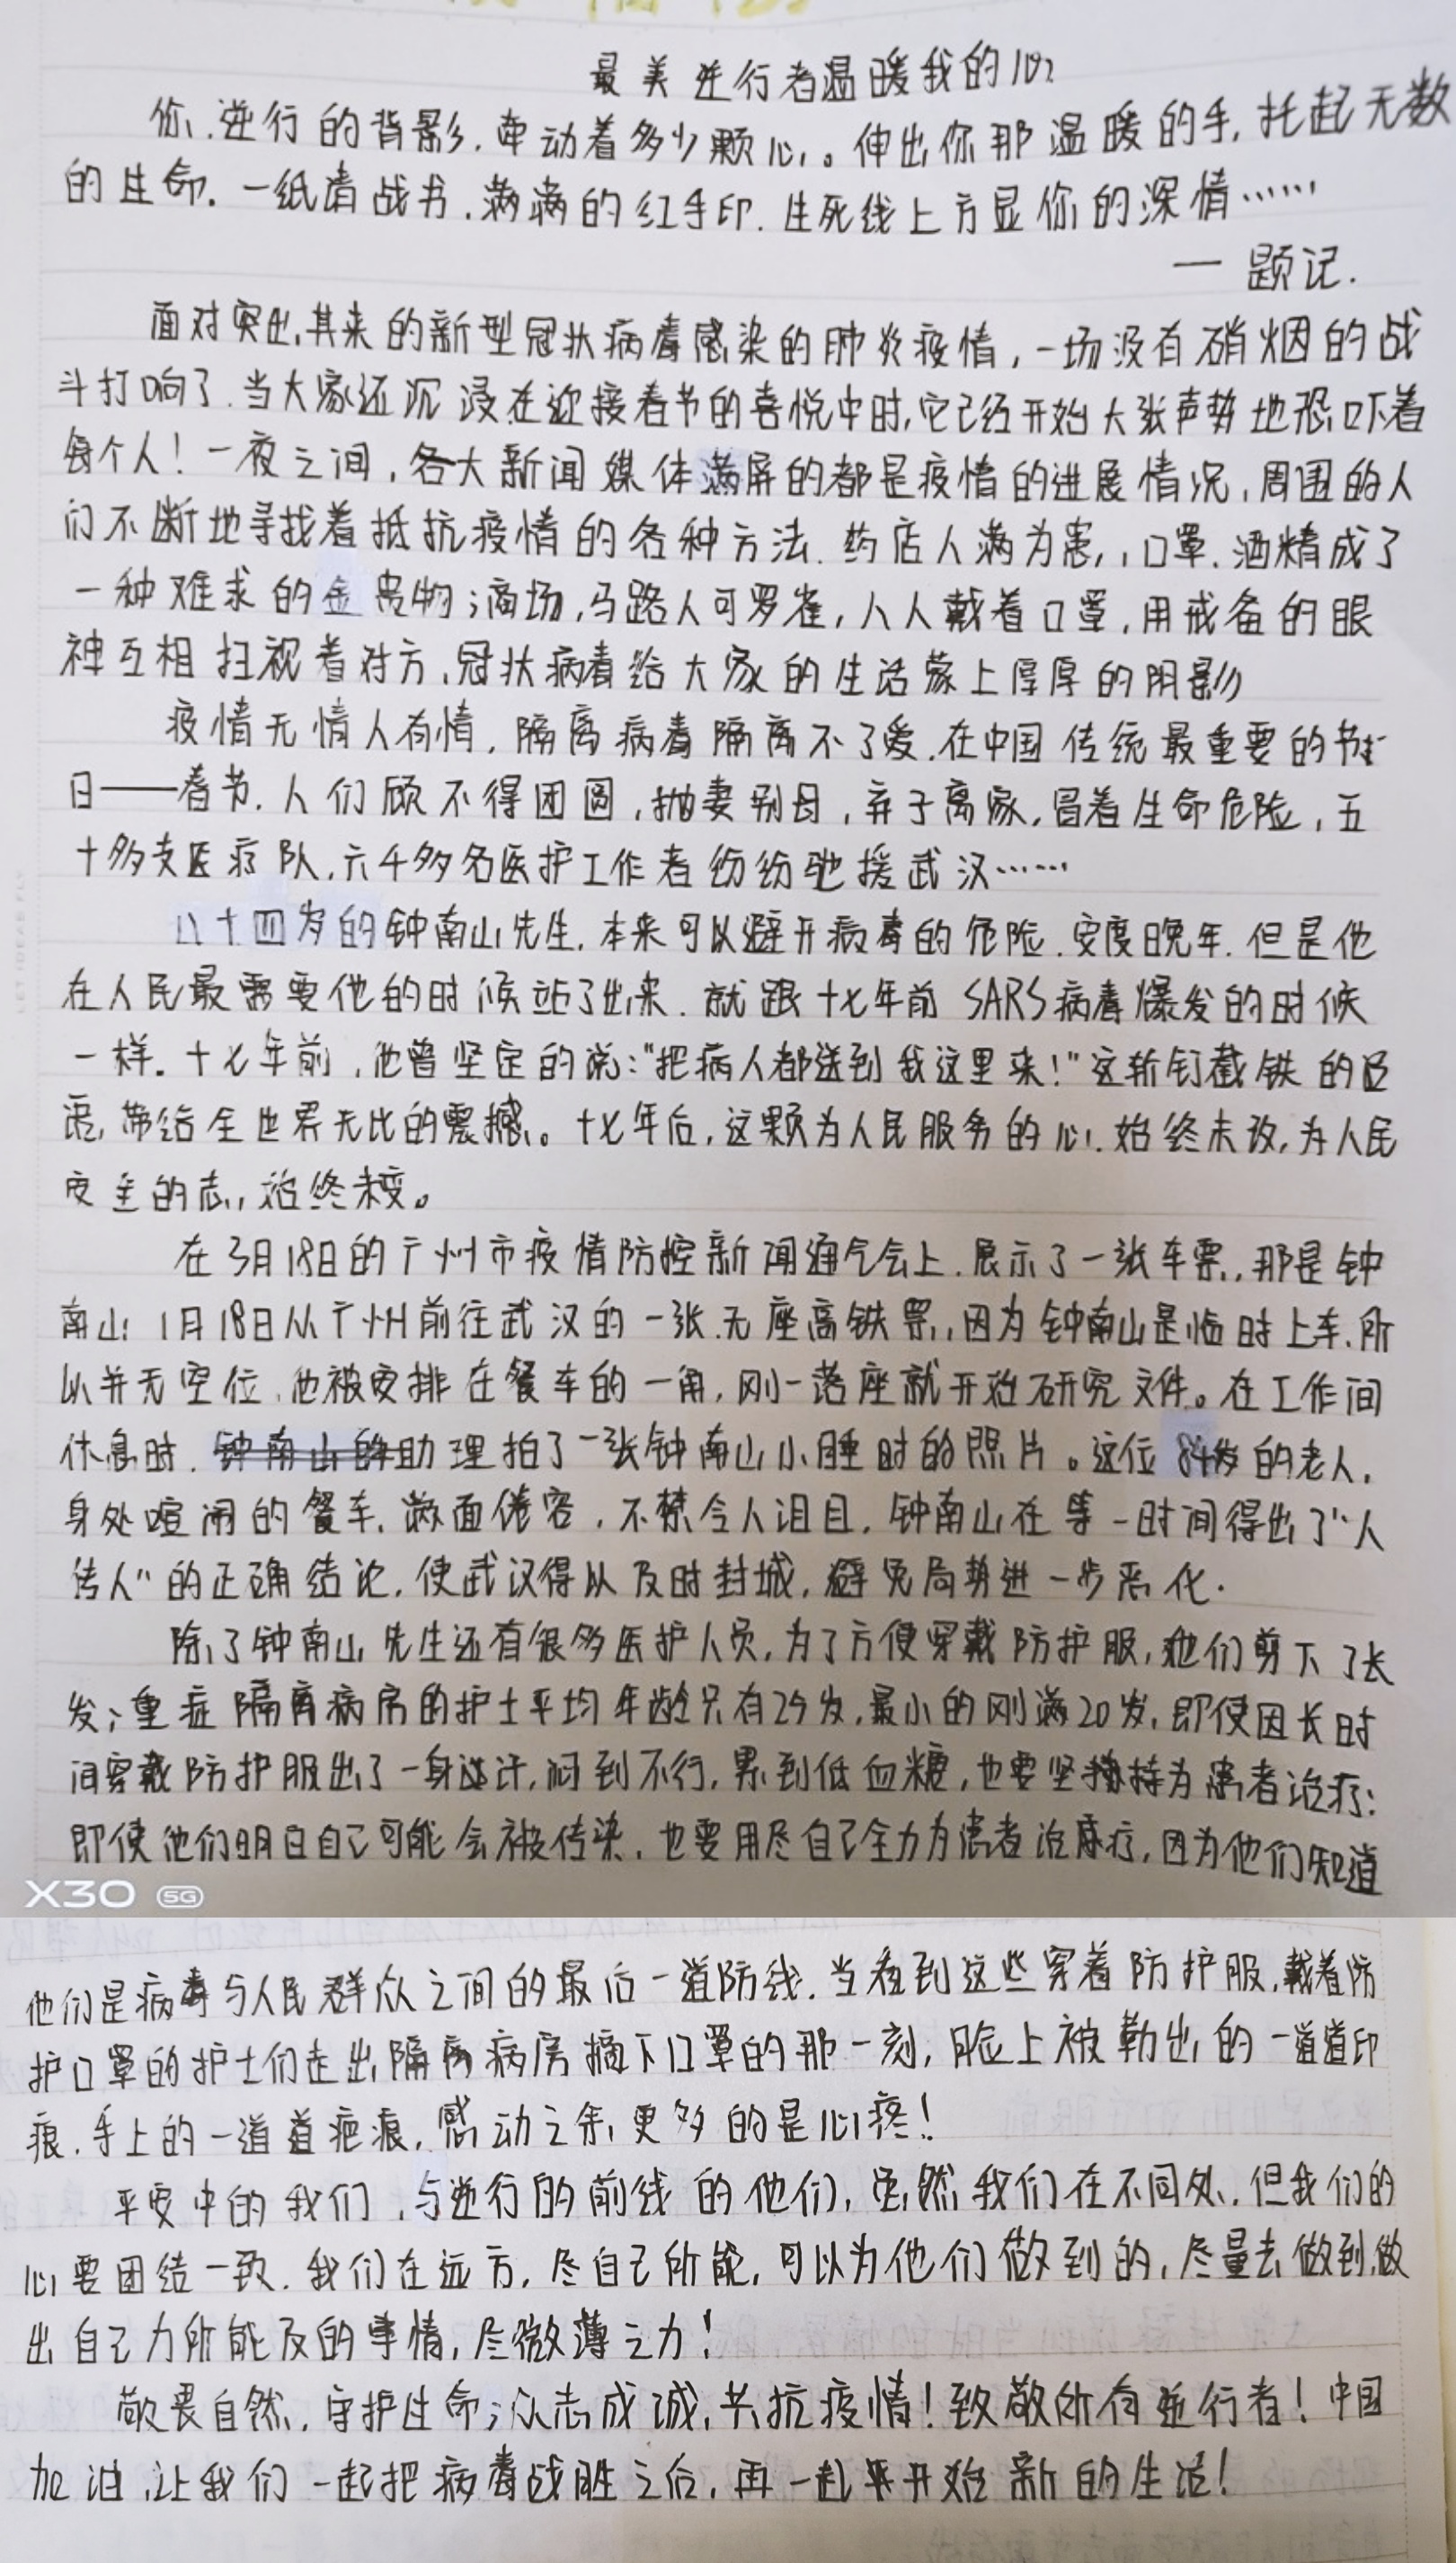 最美逆行者温暖我的心
你,逆行的背影,牵动着多少颗心。伸出你那温暖的手,托起无数
的生命.一纸请战书,满满的红手印.生死线上方显你的深情……
一题记.
面对突出其来的新型冠状病毒感染的肺炎疫情,一场没有硝烟的战
斗打响了.当大家还沉浸在迎接春节的喜悦中时,它已经开始大张声势地恐吓着
每个人!一夜之间,各大新闻媒体满屏的都是疫情的进展情况,周围的人
们不断地寻找着抵抗疫情的各种方法.药店人满为患,口罩.酒精成了
一种难求的金贵物;商场,马路人可罗雀,人人戴着口罩,用戒备的眼
神互相扫视着对方,冠状病毒给大家的生活蒙上厚厚的阴影
疫情无情人有情,隔离病毒隔离不了爱.在中国传统最重要的节
日——春节.人们顾不得团圆,抛妻别母,弃子离家,冒着生命危险,五
十多支医疗队,六千多名医护工作者纷纷驰援武汉……
八十四岁的钟南山先生.本来可以避开病毒的危险.安度晚年.但是他
在人民最需要他的时候站了出来.就跟十七年前SARS病毒爆发的时候
一样.十七年前,他曾坚定的说:"把病人都送到我这里来!"这斩钉截铁的
话,带给全世界无比的震撼。十七年后,这颗为人民服务的心.始终未改,为人民
安全的志,始终未变。
在3月18日的广州市疫情防控新闻通气会上.展示了一张车票,那是钟
南山1月18日从广州前往武汉的一张无座高铁票,因为钟南山是临时上车.所
以并无空位,他被安排在餐车的一角,刚一落座就开始研究文件。在工作间
休息时.钟南山的助理拍了一张钟南山小睡时的照片。这位84岁的老人,
身处喧闹的餐车.满面倦容,不禁令人泪目.钟南山在第一时间得出了"人
传人"的正确结论,使武汉得以及时封城,避免局势进一步恶化.
除了钟南山先生还有很多医护人员,为了方便穿戴防护服,她们剪下了长
发;重症隔离病房的护士平均年龄只有29岁,最小的刚满20岁,即使因长时
间穿戴防护服出了一身汗,闷到不行,累到低血糖,也要坚持为患者治疗;
即使他们明白自己可能会被传染.也要用尽自己全力为患者治疗,因为他们知道
X30 5G
他们是病毒与人民群众之间的最后一道防线.当看到这些穿着防护服,戴着防
护口罩的护士们走出隔离病房摘下口罩的那一刻,脸上被勒出的一道道印
痕.手上的一道道疤痕,感动之余,更多的是心疼!
平安中的我们,与逆行的前线的他们,虽然我们在不同处.但我们的
心要团结一致.我们在远方,尽自己所能,可以为他们做到的,尽量去做到,做
出自己力所能及的事情,尽微薄之力!
敬畏自然.守护生命;众志成诚,共抗疫情!致敬所有逆行者!中国
加油,让我们一起把病毒战胜之后,再一起来开始新的生活!